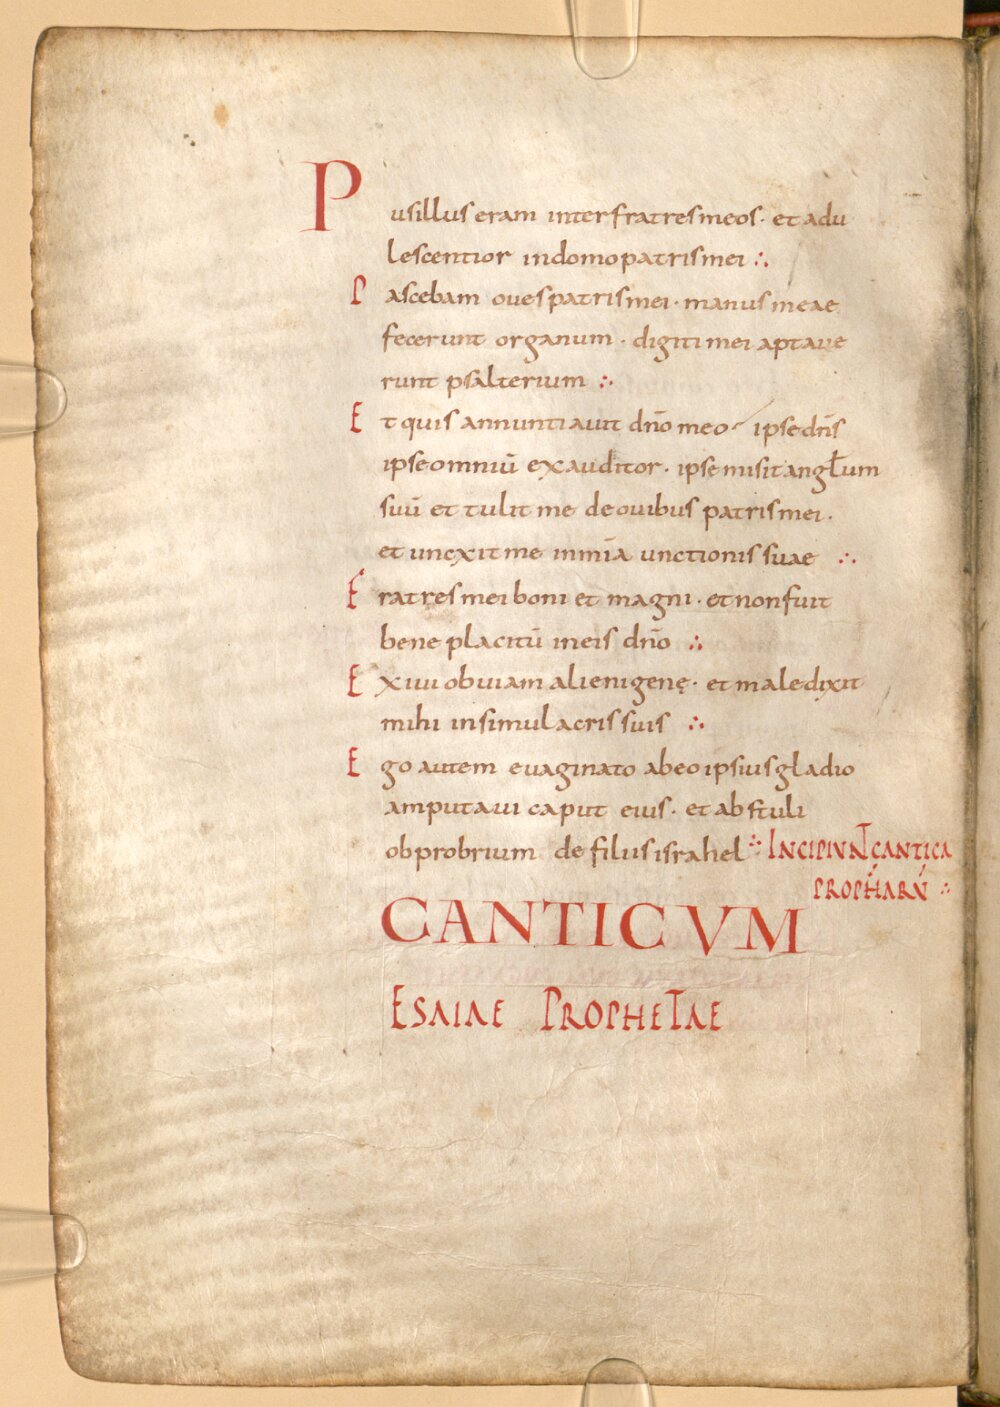 Pusillus eram inter fratres meos · et adu
lescentior in domo patris mei ∴
Pascebam oues patris mei · manus meae
fecerunt organum · digiti mei aptaue
runt psalterium ∴
Et quis annuntiauit dño meo ipse dñs
ipse omniū exauditor · ipse misit angłum
suū et tulit me de ouibus patris mei ·
et uncxit me in mīa unctionis suae ∴
Fratres mei boni et magni · et non fuit
bene placitū in eis dño ∴
Exiui obuiam alienigenę · et maledixit
mihi in simulacris suis ∴
Ego autem euaginato ab eo ipsius gladio
amputaui caput eius · et abstuli
obprobrium de filiis israhel ∴ INCIPIVNT CANTICA
PROPHARŪ ∴
CANTICVM
ESAIAE PROPHETAE